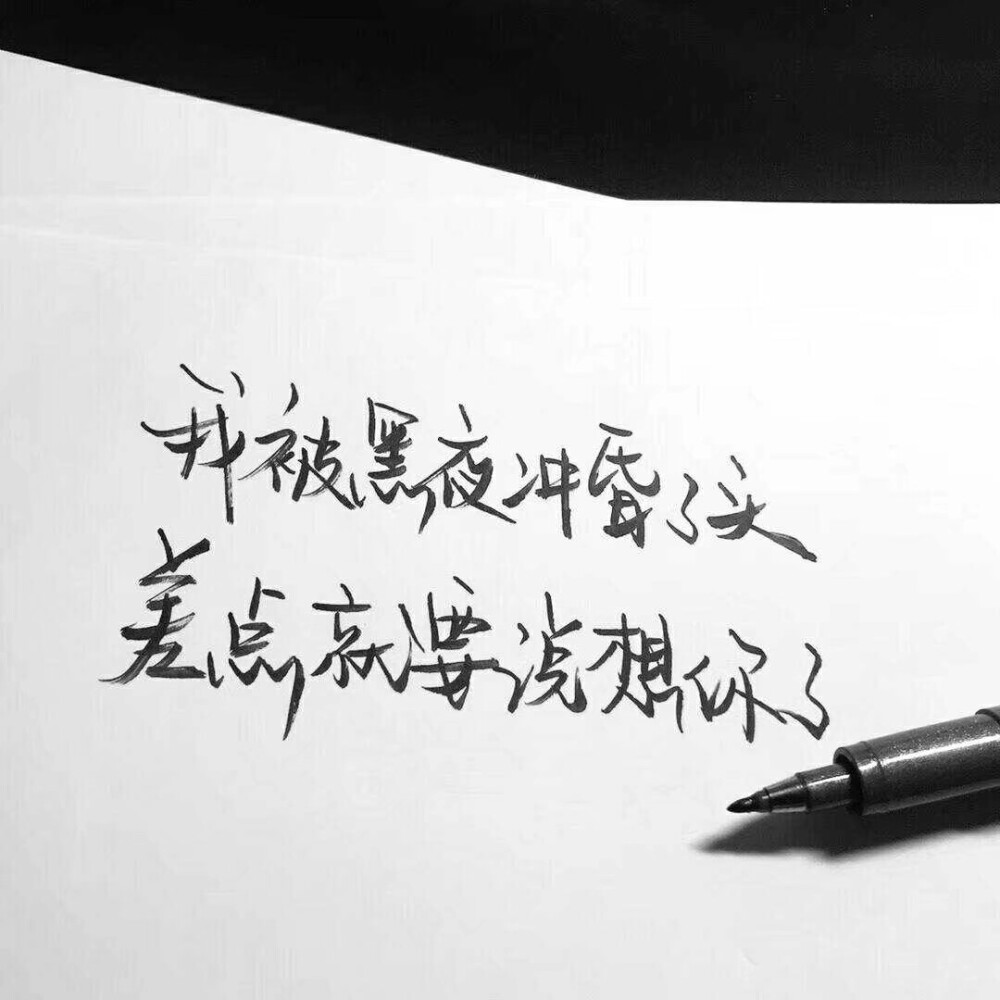 我被黑夜冲昏了头
差点就要说想你了